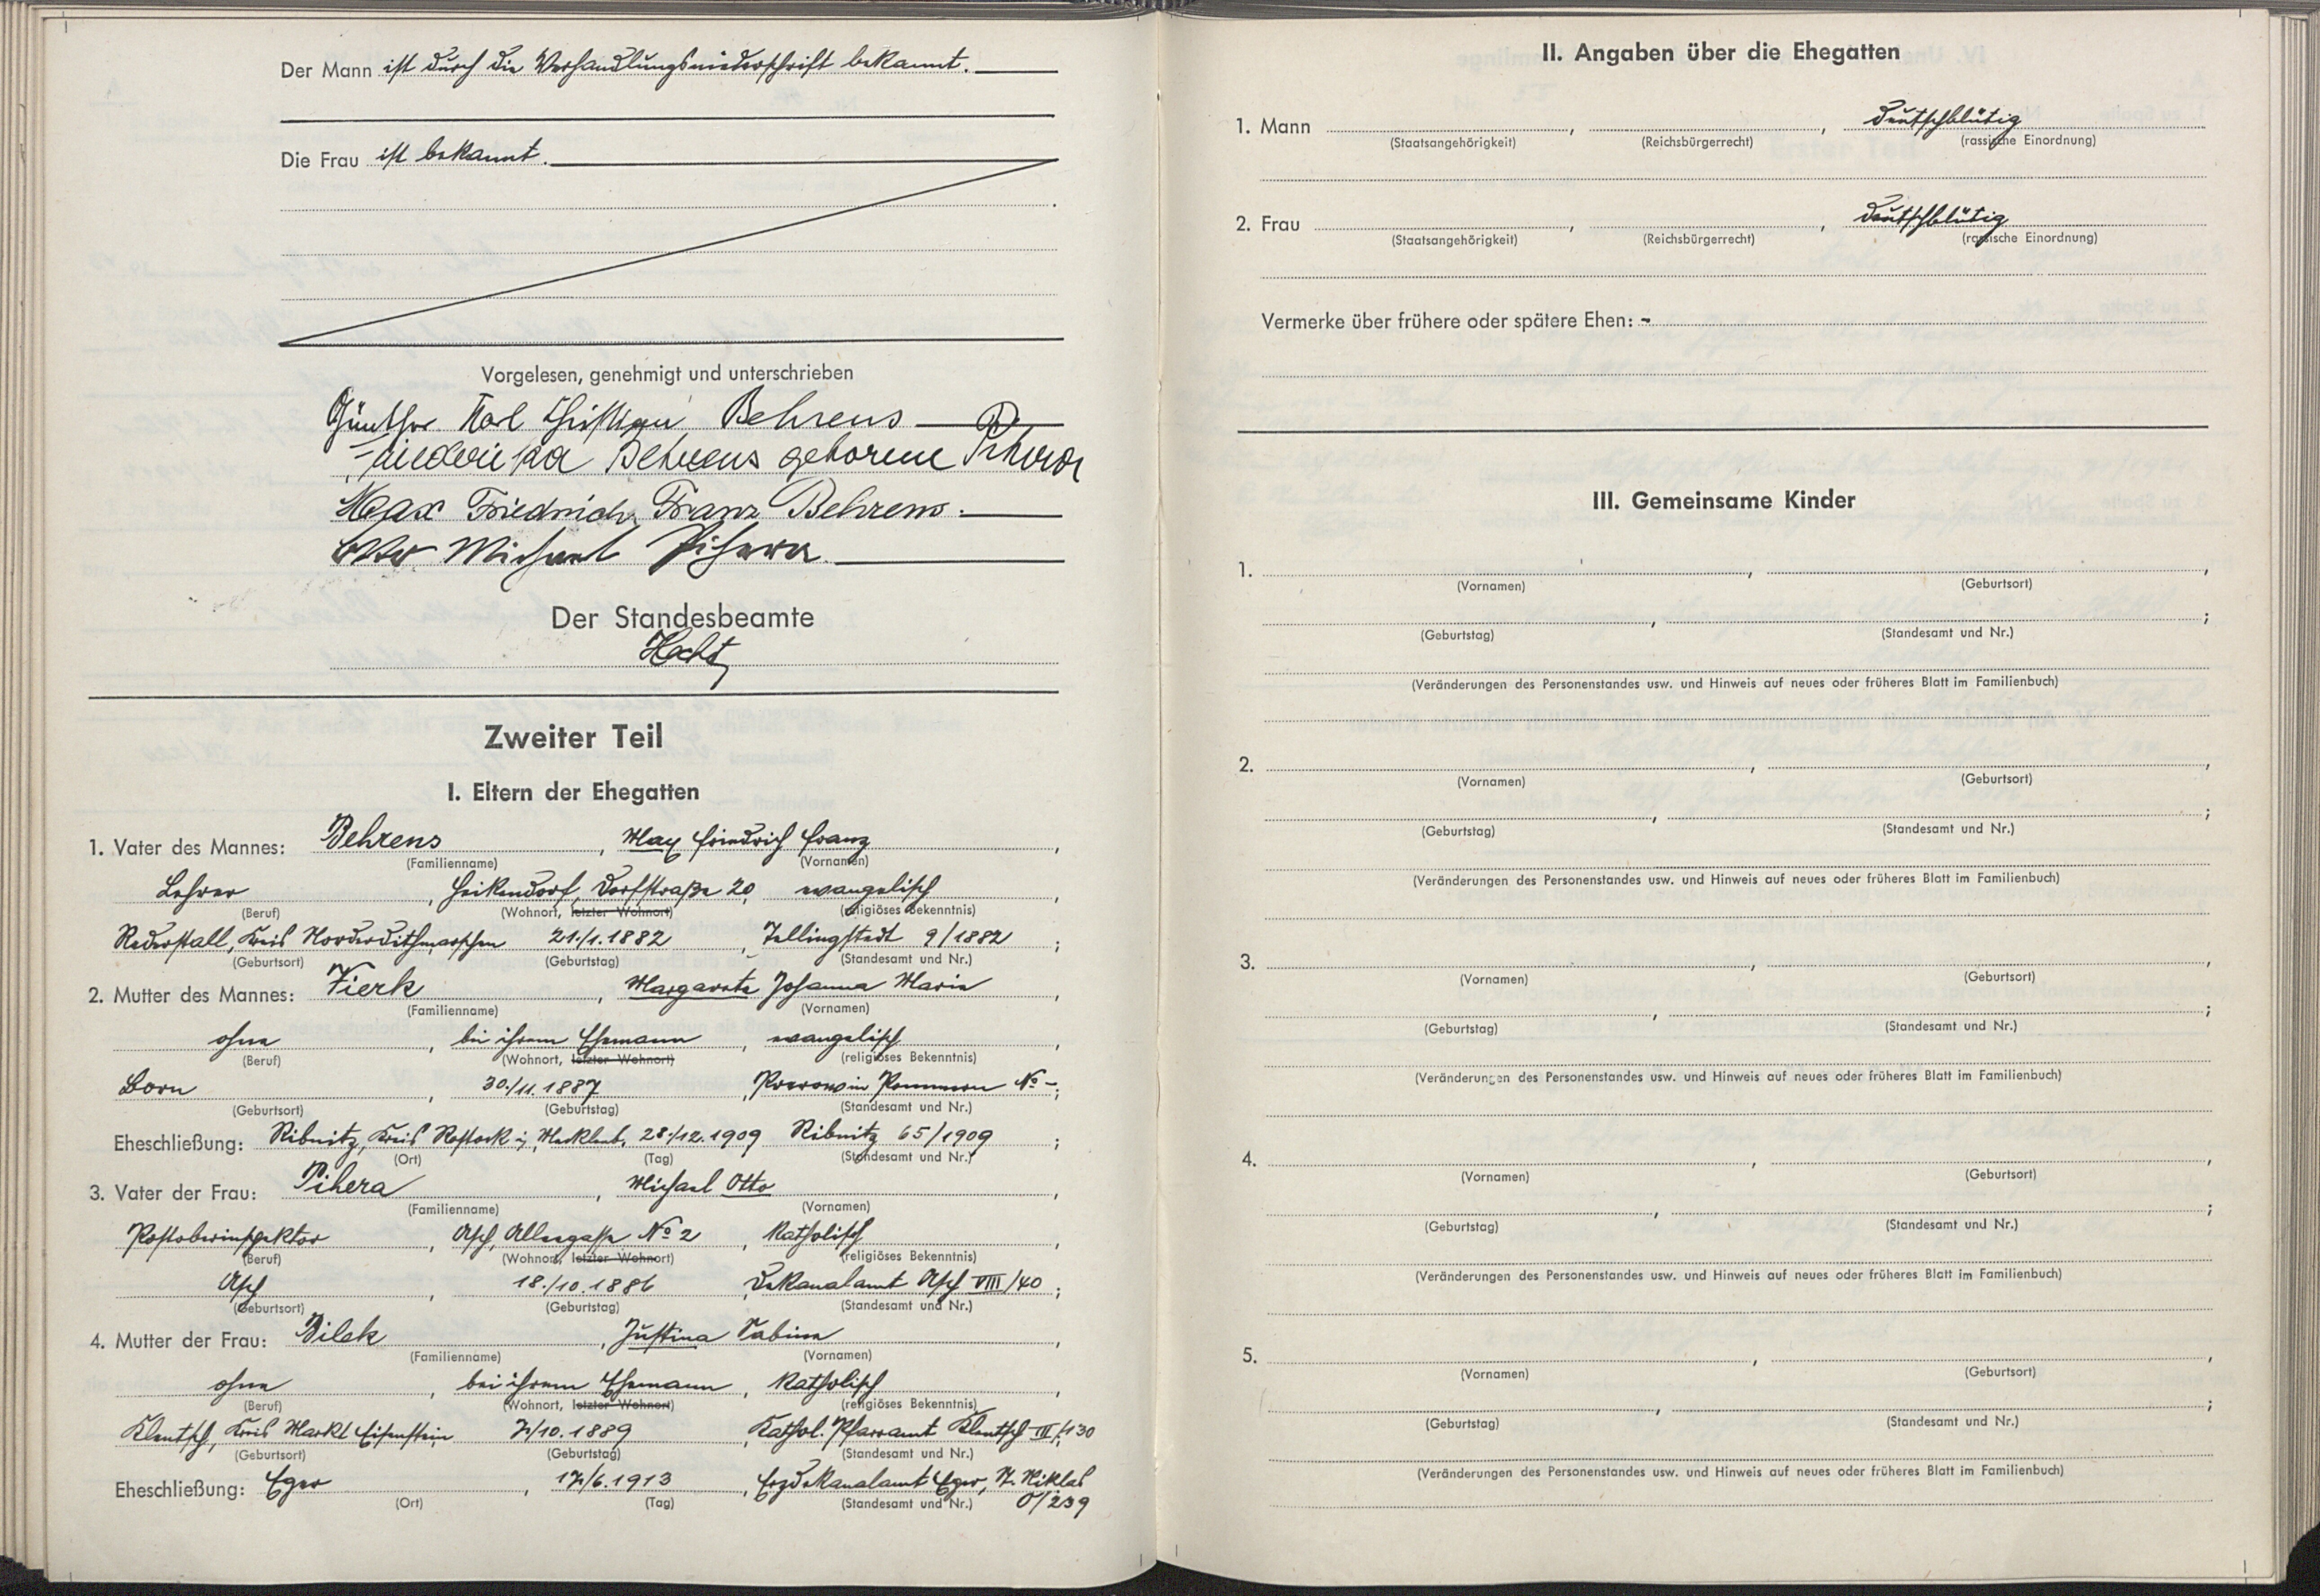 Der Mann ist durch die Verhandlungsniederschrift bekannt.
Die Frau ist bekannt.
Vorgelesen, genehmigt und unterschrieben
Günther Karl Christian Behrens
Friederika Behrens geborene Pihera
Max Friedrich Franz Behrens.
Otto Michael Pihera.
Der Standesbeamte
Hecht
Zweiter Teil
I. Eltern der Ehegatten
1. Vater des Mannes: Behrens, Max Friedrich Franz,
(Familienname) (Vornamen)
Lehrer, Heikendorf, Dorfstraße 20, evangelisch,
(Beruf) (Wohnort, letzter Wohnort) (religiöses Bekenntnis)
Rederstall, Kreis Norderdithmarschen 21./1.1882, Tellingstedt 9/1882;
(Geburtsort) (Geburtstag) (Standesamt und Nr.)
2. Mutter des Mannes: Vierk, Margareta Johanna Maria,
(Familienname) (Vornamen)
ohne, bei ihrem Ehemann, evangelisch,
(Beruf) (Wohnort, letzter Wohnort) (religiöses Bekenntnis)
Born, 30./11.1887, Prerow in Pommern No -;
(Geburtsort) (Geburtstag) (Standesamt und Nr.)
Eheschließung: Ribnitz, Kreis Rostock i. Mecklenb. 28./12.1909 Ribnitz 65/1909;
(Ort) (Tag) (Standesamt und Nr.)
3. Vater der Frau: Pihera, Michael Otto,
(Familienname) (Vornamen)
Postoberinspektor, Asch, Alleegasse No 2, katholisch,
(Beruf) (Wohnort, letzter Wohnort) (religiöses Bekenntnis)
Asch, 18./10.1886, Dekanalamt Asch VIII/40;
(Geburtsort) (Geburtstag) (Standesamt und Nr.)
4. Mutter der Frau: Bilek, Justina Sabina,
(Familienname) (Vornamen)
ohne, bei ihrem Ehemann, katholisch,
(Beruf) (Wohnort, letzter Wohnort) (religiöses Bekenntnis)
Klentsch, Kreis Markt Eisenstein 7./10.1889, Kathol. Pfarramt Klentsch III/130
(Geburtsort) (Geburtstag) (Standesamt und Nr.)
Eheschließung: Eger, 17./6.1913, Erzdekanalamt Eger, St. Niklas
(Ort) (Tag) (Standesamt und Nr.) O/239
II. Angaben über die Ehegatten
1. Mann , , deutschblütig
(Staatsangehörigkeit) (Reichsbürgerrecht) (rassische Einordnung)
2. Frau , , deutschblütig
(Staatsangehörigkeit) (Reichsbürgerrecht) (rassische Einordnung)
Vermerke über frühere oder spätere Ehen: -
III. Gemeinsame Kinder
1. , ,
(Vornamen) (Geburtsort)
(Geburtstag) (Standesamt und Nr.)
(Veränderungen des Personenstandes usw. und Hinweis auf neues oder früheres Blatt im Familienbuch)
2. , ,
(Vornamen) (Geburtsort)
(Geburtstag) (Standesamt und Nr.)
(Veränderungen des Personenstandes usw. und Hinweis auf neues oder früheres Blatt im Familienbuch)
3. , ,
(Vornamen) (Geburtsort)
(Geburtstag) (Standesamt und Nr.)
(Veränderungen des Personenstandes usw. und Hinweis auf neues oder früheres Blatt im Familienbuch)
4. , ,
(Vornamen) (Geburtsort)
(Geburtstag) (Standesamt und Nr.)
(Veränderungen des Personenstandes usw. und Hinweis auf neues oder früheres Blatt im Familienbuch)
5. , ,
(Vornamen) (Geburtsort)
(Geburtstag) (Standesamt und Nr.)
(Veränderungen des Personenstandes usw. und Hinweis auf neues oder früheres Blatt im Familienbuch)